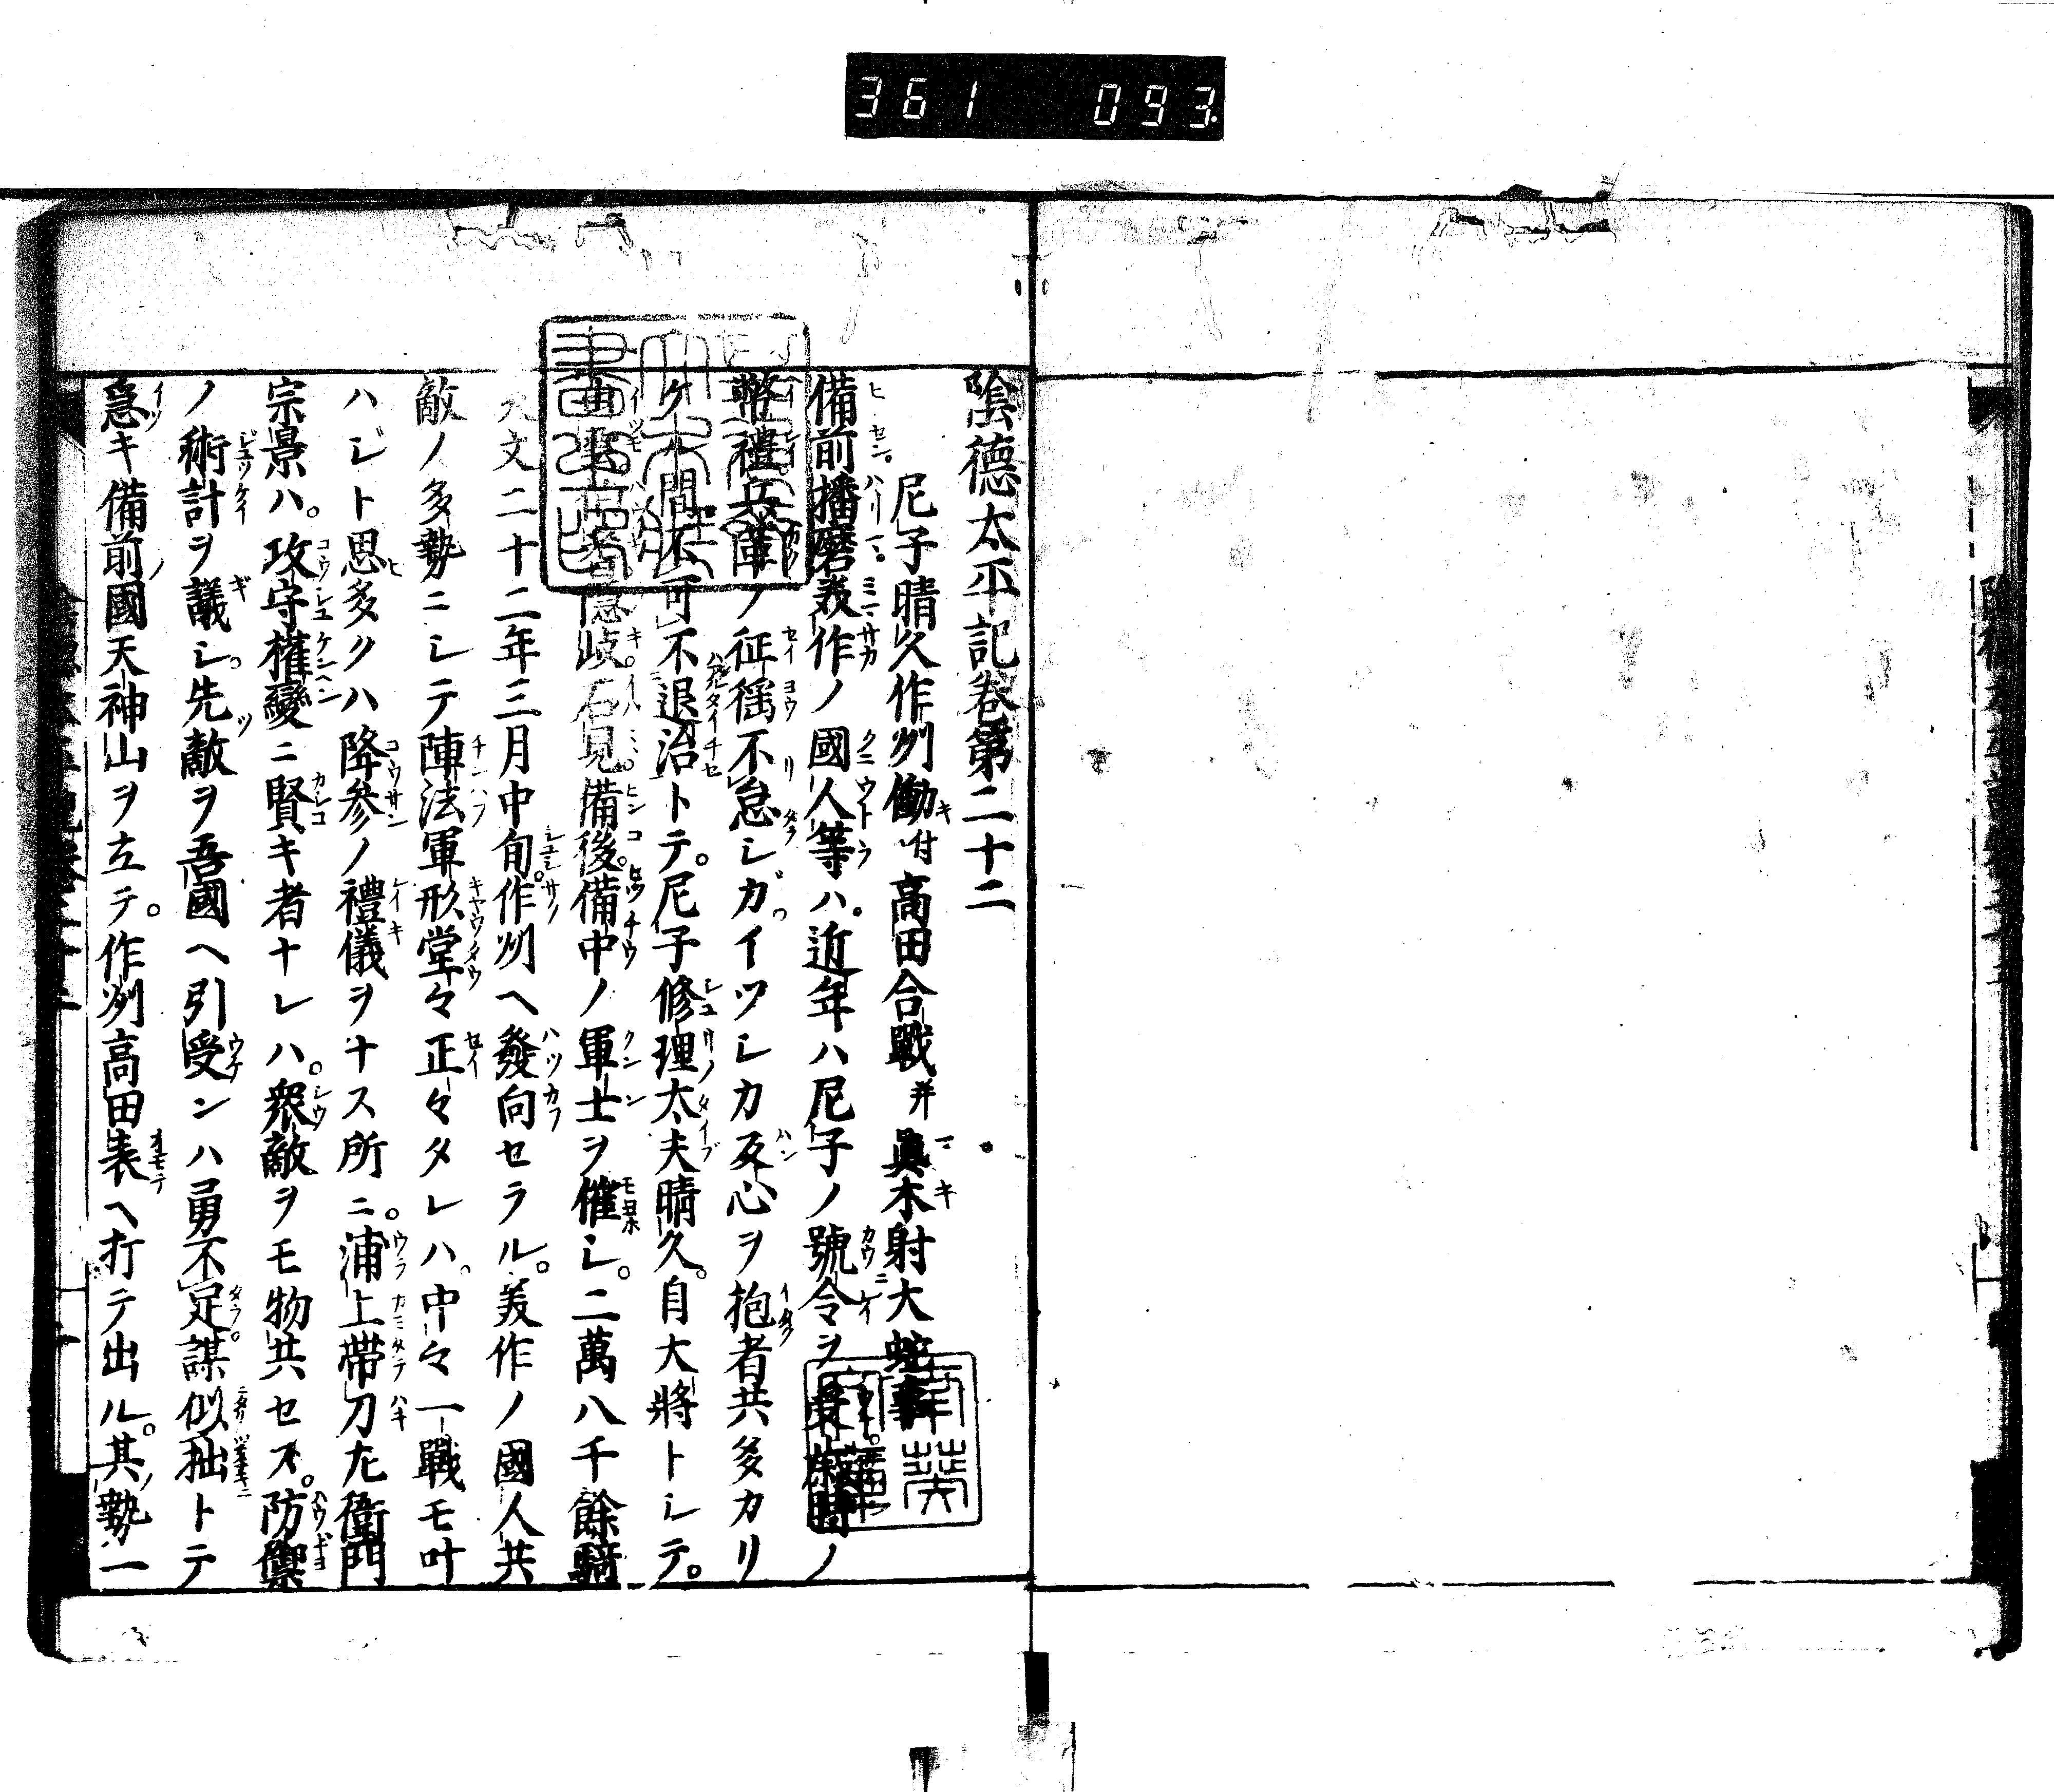 361 093
陰德太平記卷第二十二
尼子晴久作州働付高田合戰并眞木射大蛇事
備前播磨美作ノ國人等ハ。近年ハ尼子ノ號令ヲ 時ノ
幣禮兵庫ノ征徭不怠シガ。イツレカ反心ヲ抱者共多カリ
ケル間不可不退治トテ。尼子修理太夫晴久。自大將トシテ。
隱岐。石見。備後。備中ノ軍士ヲ催シ。二萬八千餘騎
天文二十二年三月中旬。作州ヘ發向セラル。美作ノ國人共
敵ノ多勢ニシテ陣法軍形堂々正々タレハ。中々一戰モ叶
ハジト思多クハ降參ノ禮儀ヲナス所ニ。浦上帶刀左衛門
宗景ハ。攻守權變ニ賢キ者ナレハ。衆敵ヲモ物共セス。防禦
ノ術計ヲ議シ。先敵ヲ吾國ヘ引受ンハ勇不足謀似拙トテ
急キ備前國天神山ヲ立テ。作州高田表ヘ打テ出ル。其勢一